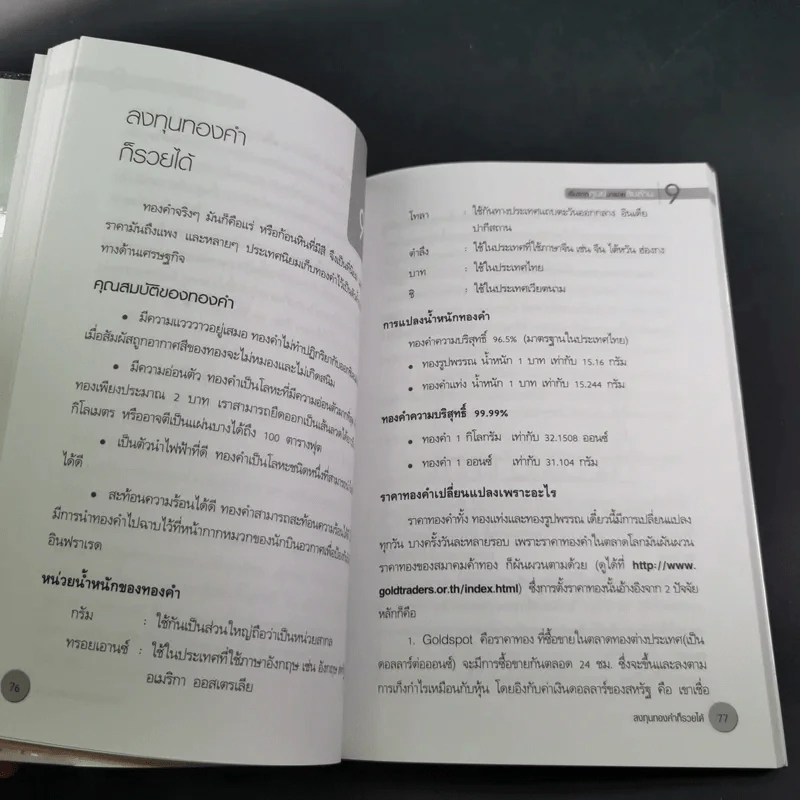 ลงทุนทองคำ
ก็รวยได้
ทองคำจริงๆ มันก็คือแร่ หรือก้อนหินที่มีสี จึงเป็นที่
ราคามันถึงแพง และหลายๆ ประเทศนิยมเก็บทองคำไว้เป็น
ทางด้านเศรษฐกิจ
คุณสมบัติของทองคำ
• มีความแวววาวอยู่เสมอ ทองคำไม่ทำปฏิกิริยากับออกซิเจน
เมื่อสัมผัสถูกอากาศสีของทองจะไม่หมองและไม่เกิดสนิม
• มีความอ่อนตัว ทองคำเป็นโลหะที่มีความอ่อนตัวมากที่สุด
ทองเพียงประมาณ 2 บาท เราสามารถยืดออกเป็นเส้นลวดได้
กิโลเมตร หรืออาจตีเป็นแผ่นบางได้ถึง 100 ตารางฟุต
• เป็นตัวนำไฟฟ้าที่ดี ทองคำเป็นโลหะชนิดหนึ่งที่สามารถ
ได้ดี
• สะท้อนความร้อนได้ดี ทองคำสามารถสะท้อนความร้อนได้ดี
มีการนำทองคำไปฉาบไว้ที่หน้ากากหมวกของนักบินอวกาศเพื่อป้องกัน
อินฟราเรด
หน่วยน้ำหนักของทองคำ
กรัม : ใช้กันเป็นส่วนใหญ่ถือว่าเป็นหน่วยสากล
ทรอยเอานซ์ : ใช้ในประเทศที่ใช้ภาษาอังกฤษ เช่น อังกฤษ
อเมริกา ออสเตรเลีย
76
9
โทลา : ใช้กันทางประเทศแถบตะวันออกกลาง อินเดีย
ปากีสถาน
ตำลึง : ใช้ในประเทศที่ใช้ภาษาจีน เช่น จีน ไต้หวัน ฮ่องกง
บาท : ใช้ในประเทศไทย
ชิ : ใช้ในประเทศเวียดนาม
การแปลงน้ำหนักทองคำ
ทองคำความบริสุทธิ์ 96.5% (มาตรฐานในประเทศไทย)
• ทองรูปพรรณ น้ำหนัก 1 บาท เท่ากับ 15.16 กรัม
• ทองคำแท่ง น้ำหนัก 1 บาท เท่ากับ 15.244 กรัม
ทองคำความบริสุทธิ์ 99.99%
• ทองคำ 1 กิโลกรัม เท่ากับ 32.1508 ออนซ์
• ทองคำ 1 ออนซ์ เท่ากับ 31.104 กรัม
ราคาทองคำเปลี่ยนแปลงเพราะอะไร
ราคาทองคำทั้ง ทองแท่งและทองรูปพรรณ เดี๋ยวนี้มีการเปลี่ยนแปลง
ทุกวัน บางครั้งวันละหลายรอบ เพราะราคาทองคำในตลาดโลกมันผันผวน
ราคาทองของสมาคมค้าทอง ก็ผันผวนตามด้วย (ดูได้ที่ http://www.
goldtraders.or.th/index.html) ซึ่งการตั้งราคาทองนั้นอ้างอิงจาก 2 ปัจจัย
หลักก็คือ
1. Goldspot คือราคาทอง ที่ซื้อขายในตลาดทองต่างประเทศ(เป็น
ดอลลาร์ต่อออนซ์) จะมีการซื้อขายกันตลอด 24 ชม. ซึ่งจะขึ้นและลงตาม
การเก็งกำไรเหมือนกับหุ้น โดยอิงกับค่าเงินดอลลาร์ของสหรัฐ คือ เขาเชื่อ
ลงทุนทองคำก็รวยได้ 77